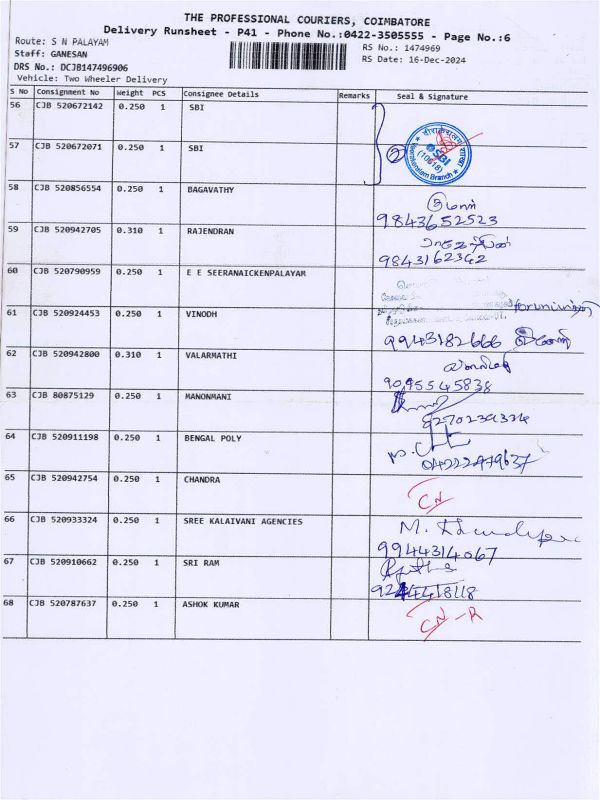 THE PROFESSIONAL COURIERS, COIMBATORE
Delivery Runsheet - P41 - Phone No.:0422-3505555 - Page No.:6
Route: S N PALAYAM
RS No.: 1474969
Staff: GANESAN
RS Date: 16-Dec-2024
DRS No.: DCJB147496906
Vehicle: Two Wheeler Delivery
S No Consignment No Weight PCS Consignee Details Remarks Seal & Signature
56 CJB 520672142 0.250 1 SBI
57 CJB 520672071 0.250 1 SBI
2
SBI
(10618)
Branch
58 CJB 520856554 0.250 1 BAGAVATHY
9843652523
59 CJB 520942705 0.310 1 RAJENDRAN
9843162342
60 CJB 520790959 0.250 1 E E SEERANAICKENPALAYAM
61 CJB 520924453 0.250 1 VINODH
9943182666
62 CJB 520942800 0.310 1 VALARMATHI
9095545838
63 CJB 80875129 0.250 1 MANONMANI
64 CJB 520911198 0.250 1 BENGAL POLY
04222479637
65 CJB 520942754 0.250 1 CHANDRA
CN
66 CJB 520933324 0.250 1 SREE KALAIVANI AGENCIES
9944314067
67 CJB 520910662 0.250 1 SRI RAM
68 CJB 520787637 0.250 1 ASHOK KUMAR
CN-R